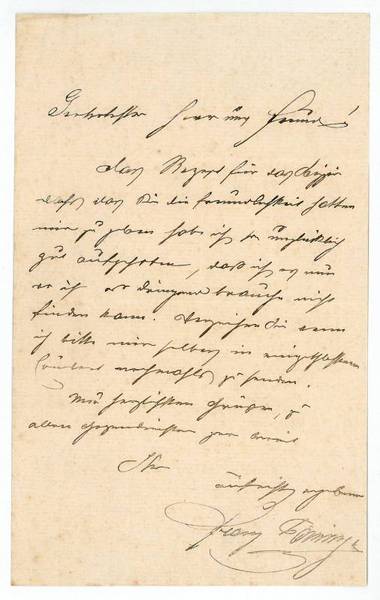 Geehrtester Herr und Freund!
Das Rezept für das
daß das Sie die Freundlichkeit hatten
mir zu geben habe ich so unglücklich
gut aufgehoben, daß ich es nun
wo ich es dringend brauche nicht
finden kann. Verzeihen Sie wenn
ich bitte mir selbes in
nochmals zu senden.
Mit herzlichsten Grüßen, zu
allen Gegendiensten gern bereit
Ihr
aufrichtig ergebener
Franz